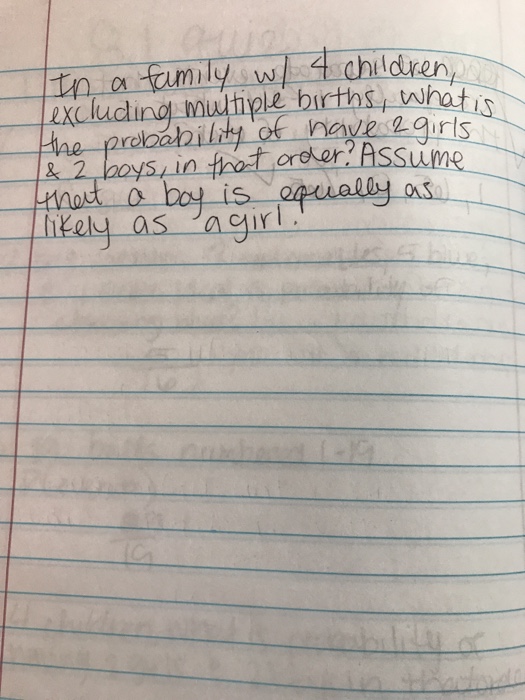 In a family w/ 4 children,
excluding multiple births, what is
the probability of have 2 girls
& 2 boys, in that order? Assume
that a boy is equally as
likely as a girl.